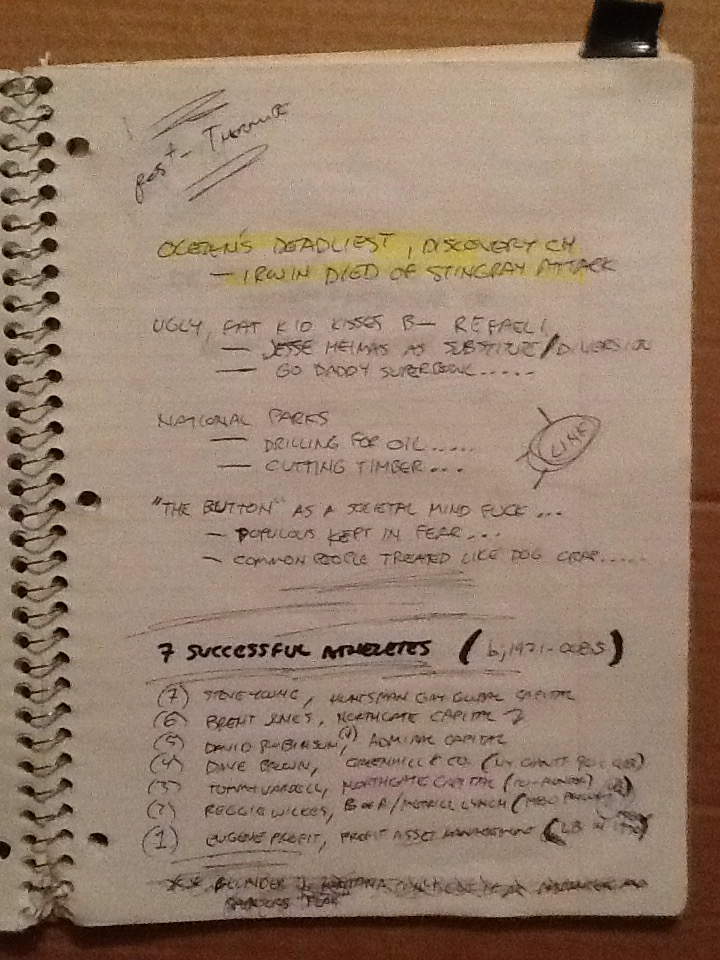 post-
OCEAN'S DEADLIEST, DISCOVERY CH
— IRWIN DIED OF STINGRAY ATTACK
UGLY, FAT KID KISSES B— REFAELI,
— JESSE HEIMAN AS SUBSTITUTE/DIVERSION
— GO DADDY SUPERBOWL.....
NATIONAL PARKS
— DRILLING FOR OIL.....
— CUTTING TIMBER...
LINK
"THE BUTTON" AS A SOCIETAL MIND FUCK...
— POPULOUS KEPT IN FEAR...
— COMMON PEOPLE TREATED LIKE DOG CRAP.....
7 SUCCESSFUL ATHELETES
(7) STEVE YOUNG, HUNTSMAN GAY GLOBAL CAPITAL
(6) BRENT JONES, NORTHGATE CAPITAL
(5) DAVID ROBINSON, ADMIRAL CAPITAL
(4) DAVE BROWN, GREENHILL & CO.
(3) TOMMY VARDELL, NORTHGATE CAPITAL
(2) REGGIE WILKES, B of A/MERRILL LYNCH
(1) EUGENE PROFIT, PROFIT ASSET MANAGEMENT
** BLUNDER